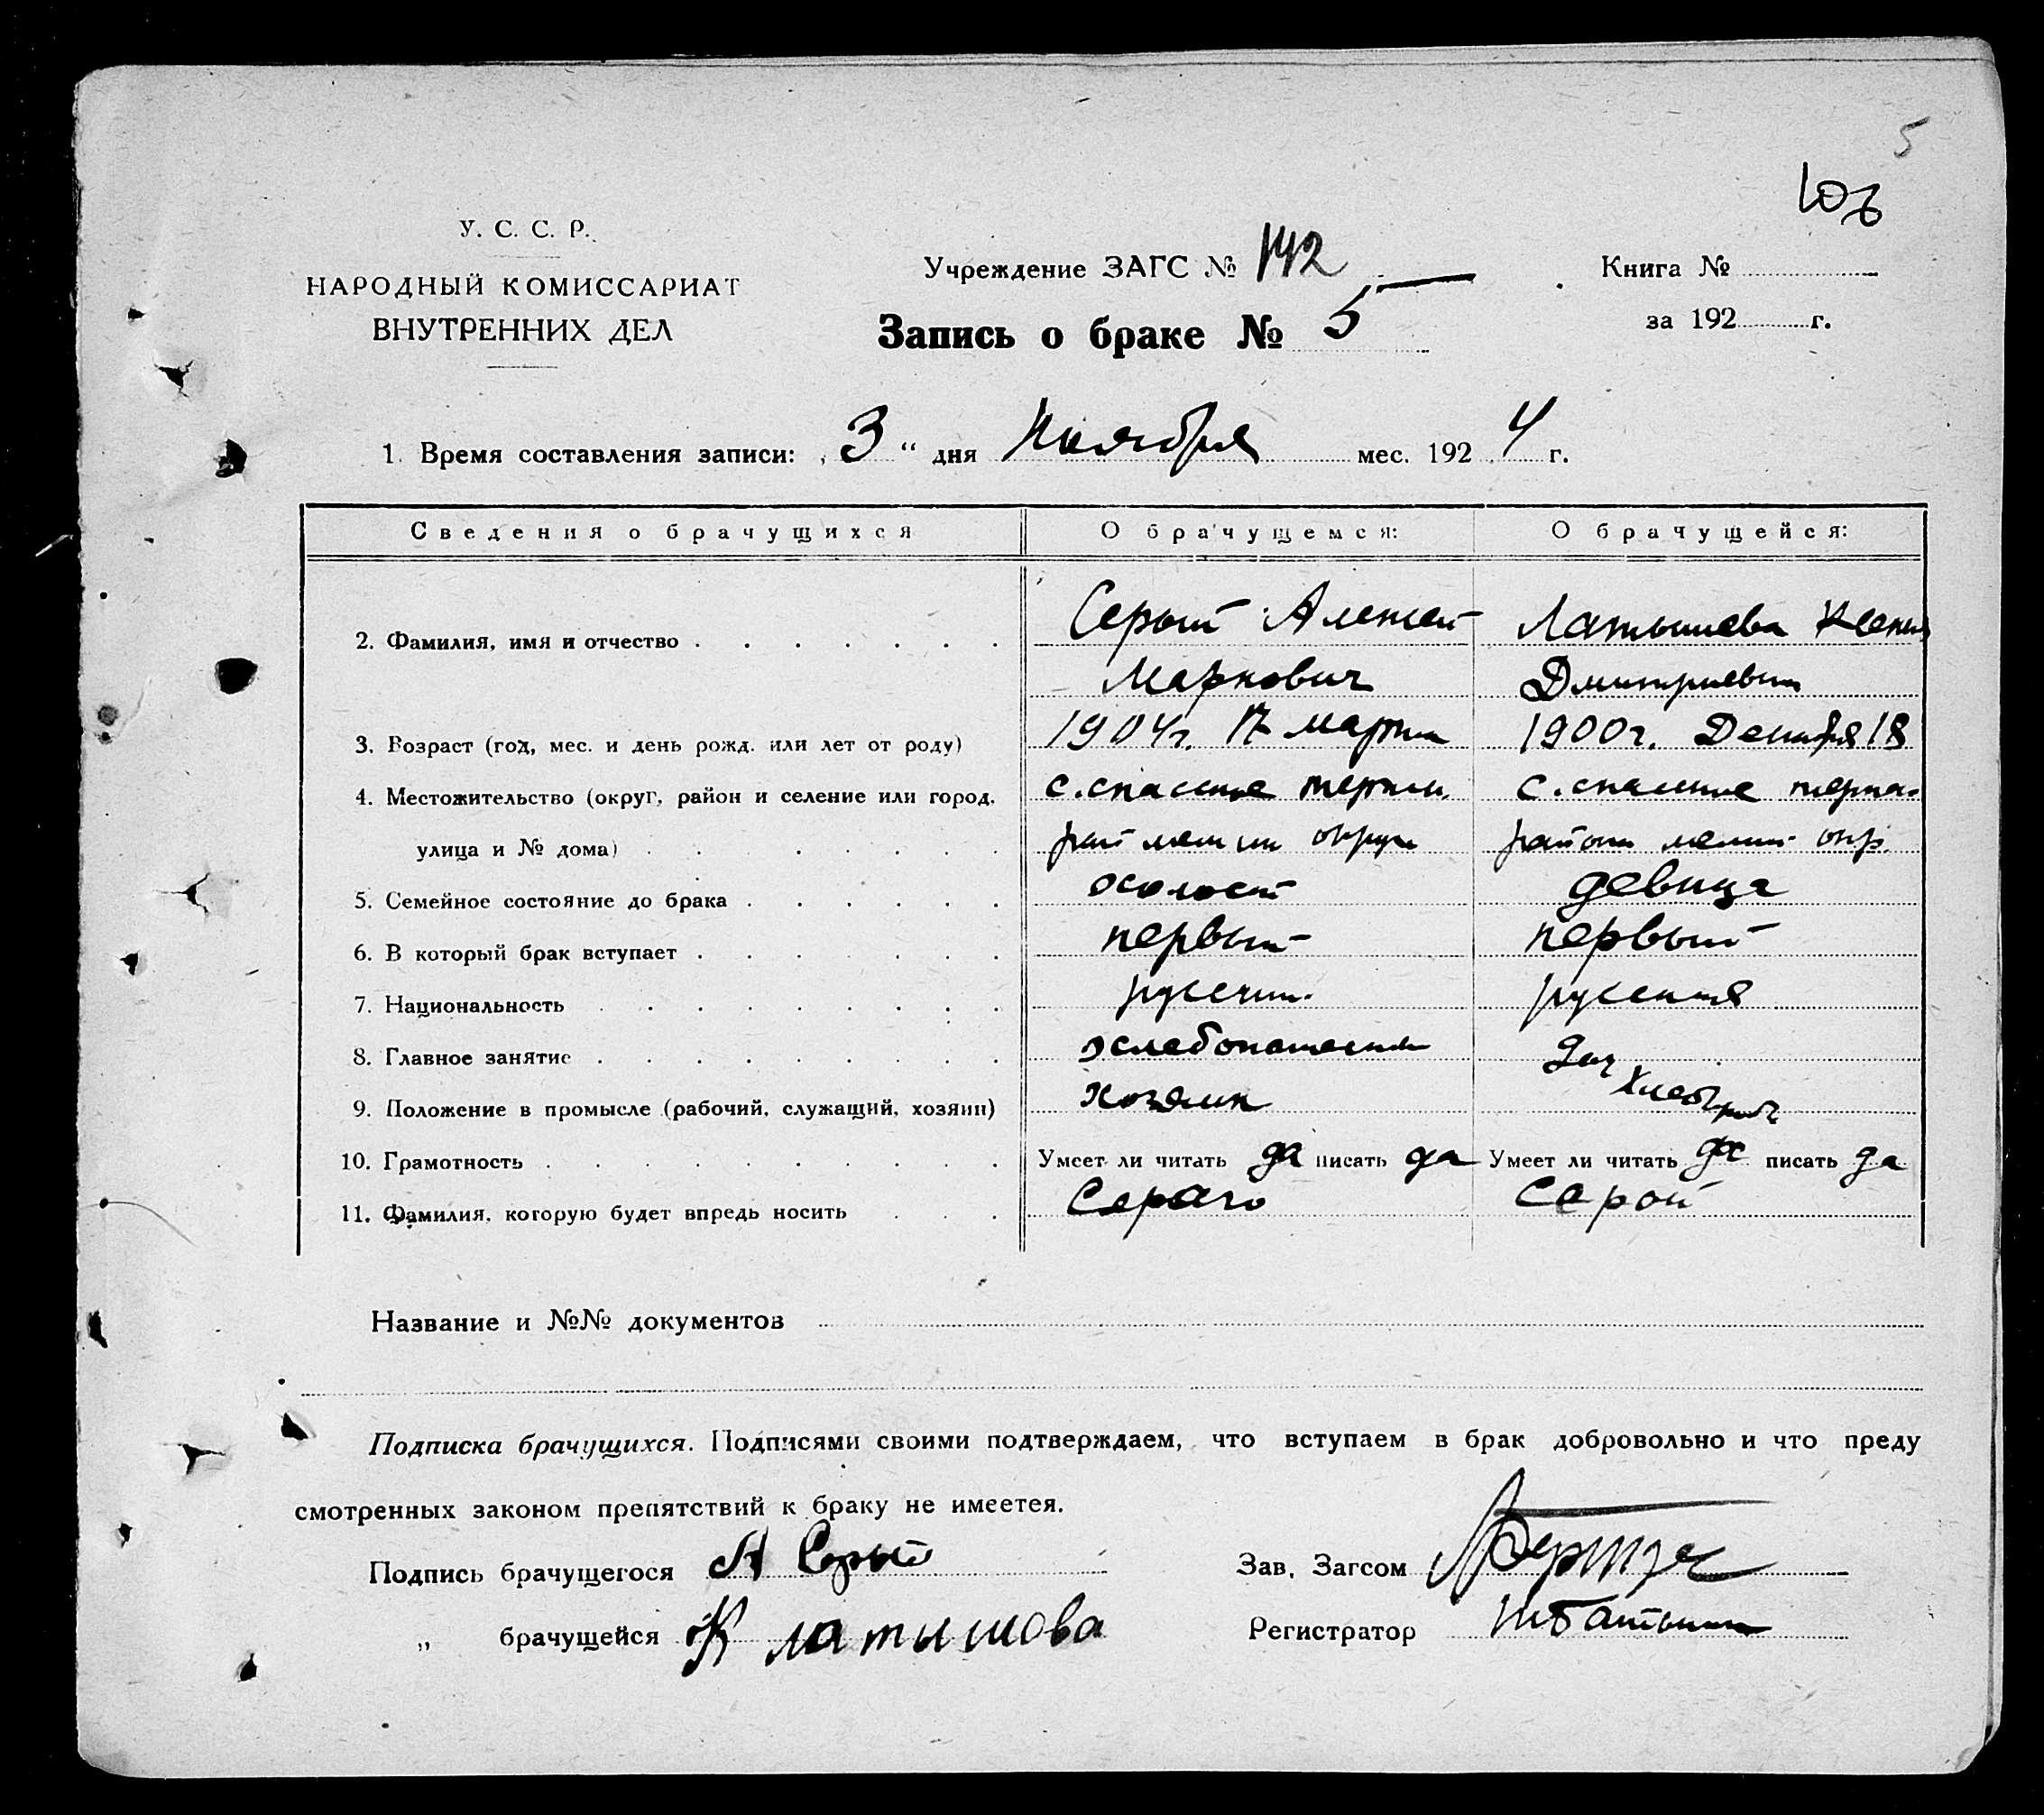 5
106
У. С. С. Р.
НАРОДНЫЙ КОМИССАРИАТ
ВНУТРЕННИХ ДЕЛ
Учреждение ЗАГС № 142
Книга №
Запись о браке № 5
за 192 г.
1. Время составления записи: „ 3 “ дня Ноября мес. 192 4 г.
Сведения о брачущихся О брачущемся: О брачущейся:
2. Фамилия, имя и отчество Серый Алексей Латышева Ксения
Маркович Дмитриевна
3. Возраст (год, мес. и день рожд. или лет от роду) 1904 г. 17 марта 1900 г. Декабря 18
4. Местожительство (округ, район и селение или город, с. спасское терпен. с. спасское терпен.
улица и № дома) рай мелит округа района мелит. окр.
5. Семейное состояние до брака холост девица
6. В который брак вступает первый первый
7. Национальность русский русская
8. Главное занятие хлебопашество
9. Положение в промысле (рабочий, служащий, хозяин) хозяин
10. Грамотность Умеет ли читать да писать да Умеет ли читать да писать да
11. Фамилия, которую будет впредь носить Серого Серой
Название и №№ документов
Подписка брачущихся. Подписями своими подтверждаем, что вступаем в брак добровольно и что преду
смотренных законом препятствий к браку не имеетея.
Подпись брачущегося А Серый Зав. Загсом
„ брачущейся К латышова Регистратор